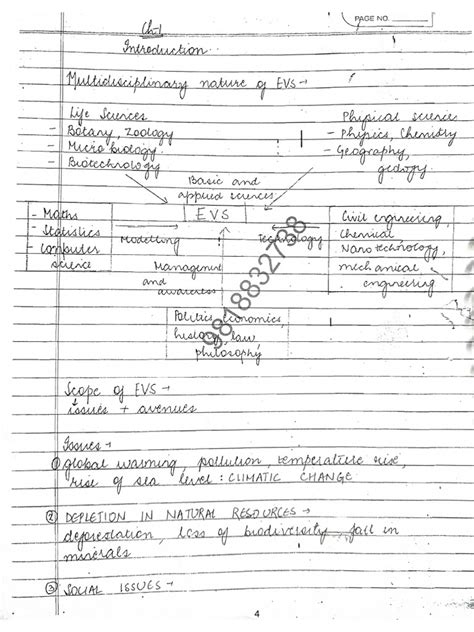 PAGE NO.
Ch-1
Introduction
Multidisciplinary nature of EVS →
Life Sciences
- Botany, zoology
- Microbiology
- Biotechnology
Physical science
- Physics, Chemistry
- Geography,
geology
Basic and
applied sciences
EVS
- Maths
- Statistics
- Computer
science
Modelling
Technology
Civil engineering,
Chemical
Nanotechnology,
mechanical
engineering
Management
and
awareness
Politics, economics,
history, law,
philosophy
9818832738
Scope of EVS →
issues + avenues
Issues →
① global warming, pollution, temperature rise,
rise of sea level : CLIMATIC CHANGE
② DEPLETION IN NATURAL RESOURCES →
deforestation, loss of biodiversity, fall in
minerals
③ SOCIAL ISSUES →
4